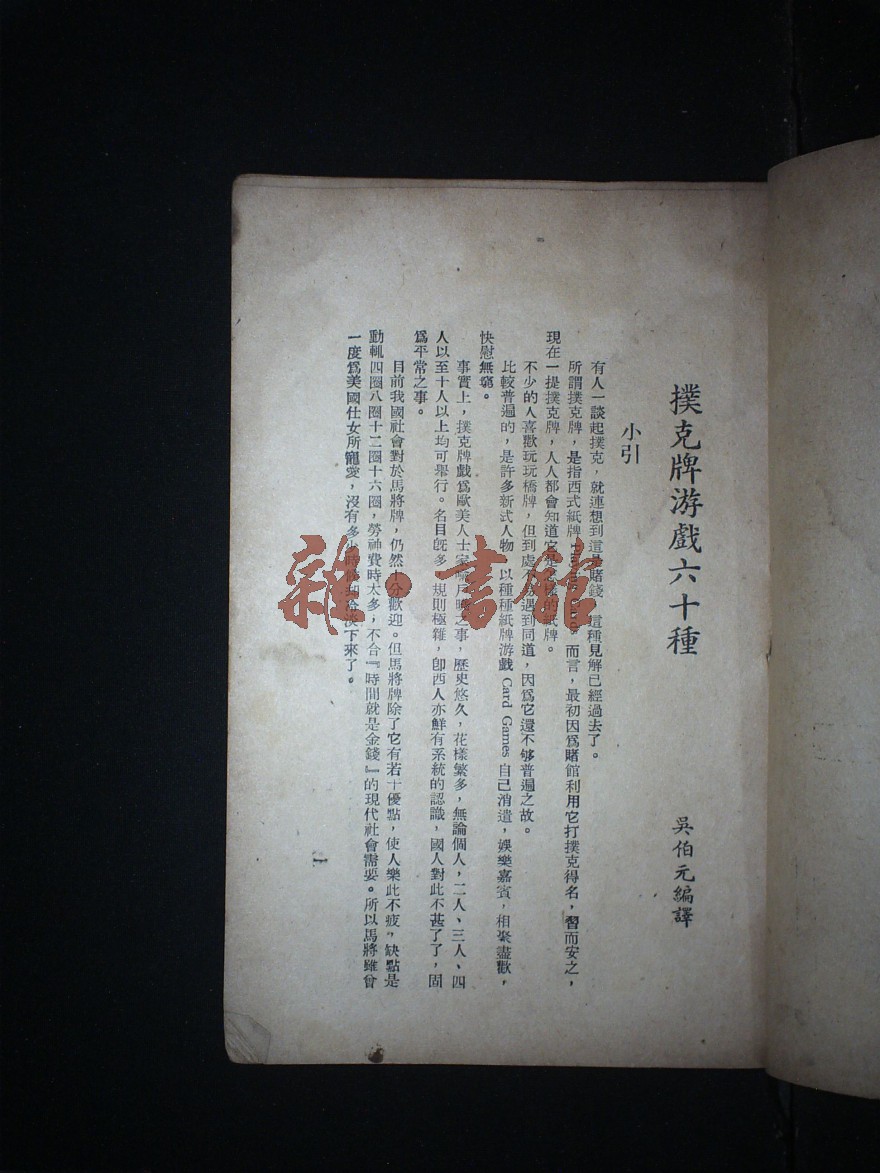 撲克牌游戲六十種
吳伯元編譯
小引
有人一談起撲克，就連想到這是賭錢，這種見解已經過去了。
所謂撲克牌，是指西式紙牌 而言，最初因爲賭館利用它打撲克得名，習而安之，
現在一提撲克牌，人人都會知道它是怎樣的紙牌。
不少的人喜歡玩玩橋牌，但到處不 遇到同道，因爲它還不够普遍之故。
比較普遍的，是許多新式人物，以種種紙牌游戲 Card Games 自己消遣，娛樂嘉賓，相聚盡歡，
快慰無窮。
事實上，撲克牌戲爲歐美人士家喩戶曉之事，歷史悠久，花樣繁多，無論個人，二人、三人、四
人以至十人以上均可舉行。名目旣多，規則極雜，卽西人亦鮮有系統的認識，國人對此不甚了了，固
爲平常之事。
目前我國社會對於馬將牌，仍然十分歡迎。但馬將牌除了它有若干優點，使人樂此不疲，缺點是
動輒四圈八圈十二圈十六圈，勞神費時太多，不合『時間就是金錢』的現代社會需要。所以馬將雖曾
一度爲美國仕女所寵愛，沒有多少時 却 淡下來了。
一
雜·書館